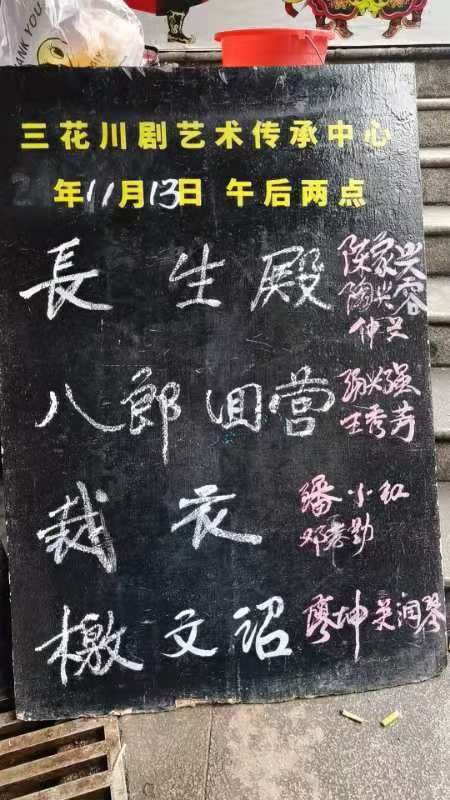 THANK YOU
三花川剧艺术传承中心
年11月13日 午后两点
長生殿 陈家兴
陶兴容
仲兴
八郎回营 杨兴强
王秀芳
裁衣 潘小红
邓孝勤
檄文诏 廖坤 吴润琴